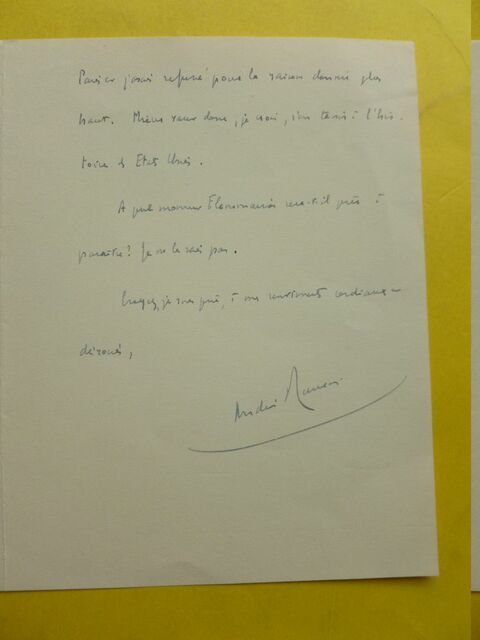 j'avais refusé pour la raison donnée plus
haut. Mieux vaut donc, je crois, s'en tenir à l'his-
toire des Etats Unis.
A quel moment sera-t-il prêt à
paraître? Je ne le sais pas.
Croyez, je vous prie, à mes sentiments cordialement
dévoués,
André Maurois